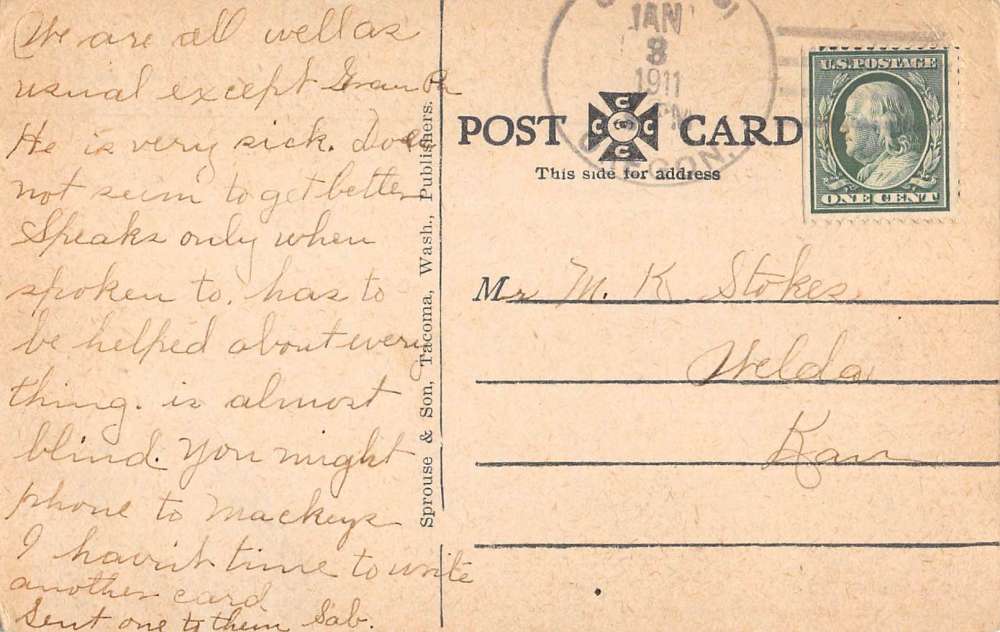 We are all well as
usual except Gran Pa
He is very sick. Does
not seem to get better
Speaks only when
spoken to. has to
be helped about every
thing. is almost
blind. You might
phone to Mackeys
I havn't time to write
another card
Sent one to them Sab.
Sprouse & Son, Tacoma, Wash., Publishers.
JAN
3
1911
OREGON.
POST CARD
C C C C
This side for address
U.S. POSTAGE
ONE CENT
Mr M. K Stokes
Welda
Kan